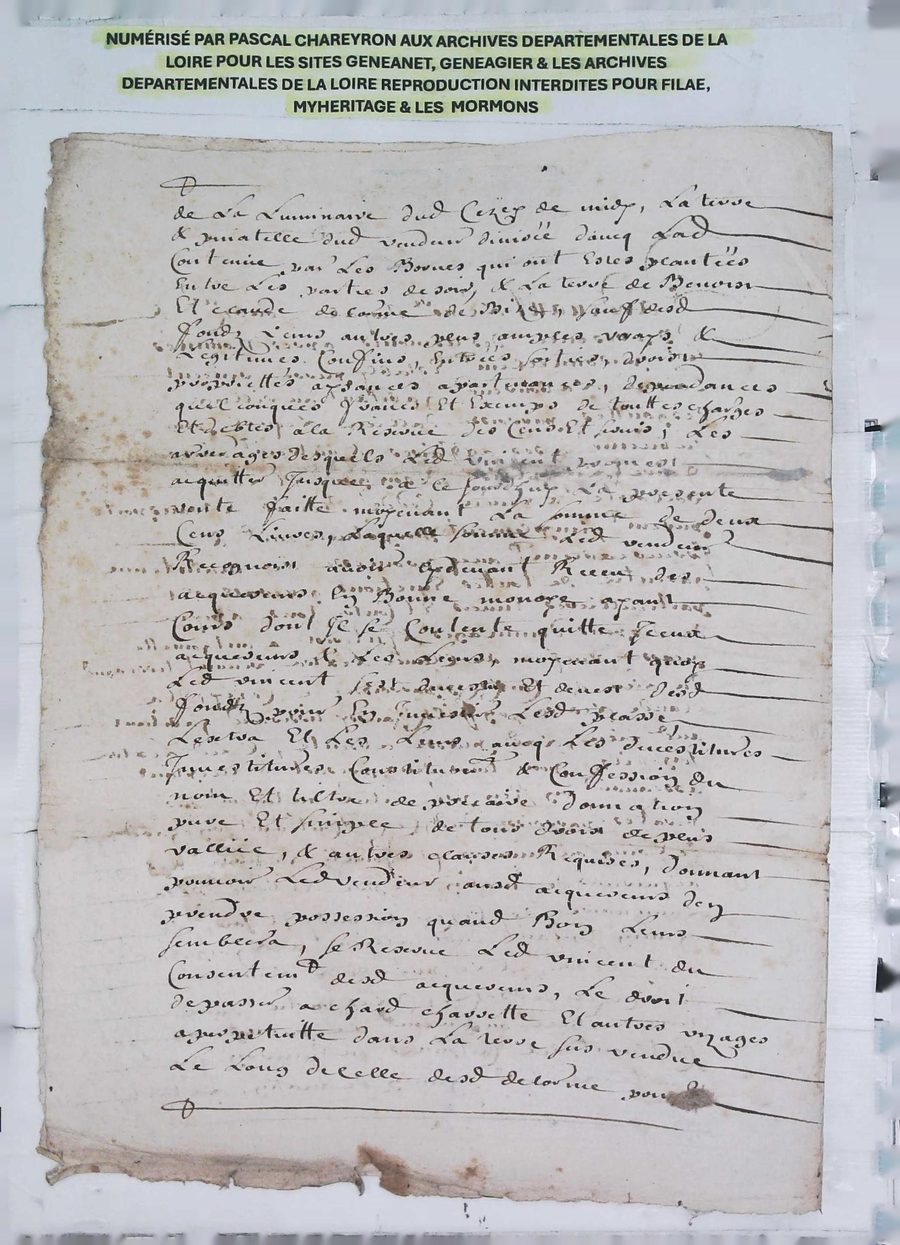 NUMÉRISÉ PAR PASCAL CHAREYRON AUX ARCHIVES DEPARTEMENTALES DE LA
LOIRE POUR LES SITES GENEANET, GENEAGIER & LES ARCHIVES
DEPARTEMENTALES DE LA LOIRE REPRODUCTION INTERDITES POUR FILAE,
MYHERITAGE & LES MORMONS
de La Luminaire dud de midy, La terre
& dud vendeur divisée Lad
Contenue par Les Bornes qui ont Estes plantées
Entre Les parties de soir, & La terre de Benoist
Et claude delorme de sauf desd
fonds Leurs autres plus amples vrays &
Legitimes Confins, Entrées sorties, droits
propriettés aysances apartenances, dependances
quelconques francs Et Exemps de touttes charges
Et debtes a la Reserve des Cens Et servis, Les
arrerages desquels Led vincent promest
acquitter Jusques a ce Jourdhuy La presente
vente faitte moyenant La somme de deux
Cens Livres, Laquelle somme Led vendeur
Recognoist avoir Receu des
acquereurs En Bonne monoye ayant
Cours dont Il se Contente quitte Iceux
acquereurs & Les Leurs, moyenant quoy
Led vincent sest Et devest desd
fonds pour En Investir Lesd
Et Les Leurs avecq Les devestitures
Investitures Constitution & Confession du
nom Et tiltre de precaire Donnation
pure Et simple de tous droits de plus
vallüe, & autres clauses Requises, Donnant
pouvoir Led vendeur ausd acquereurs den
prendre possession quand Bon Leurs
semblera, se Reserve Led vincent du
Consentemt desd acquereurs, Le droit
de passer a chard charrette Et autres uzages
a perpetuitte dans La terre sus vendue
Le Long de celle desd delorme pour